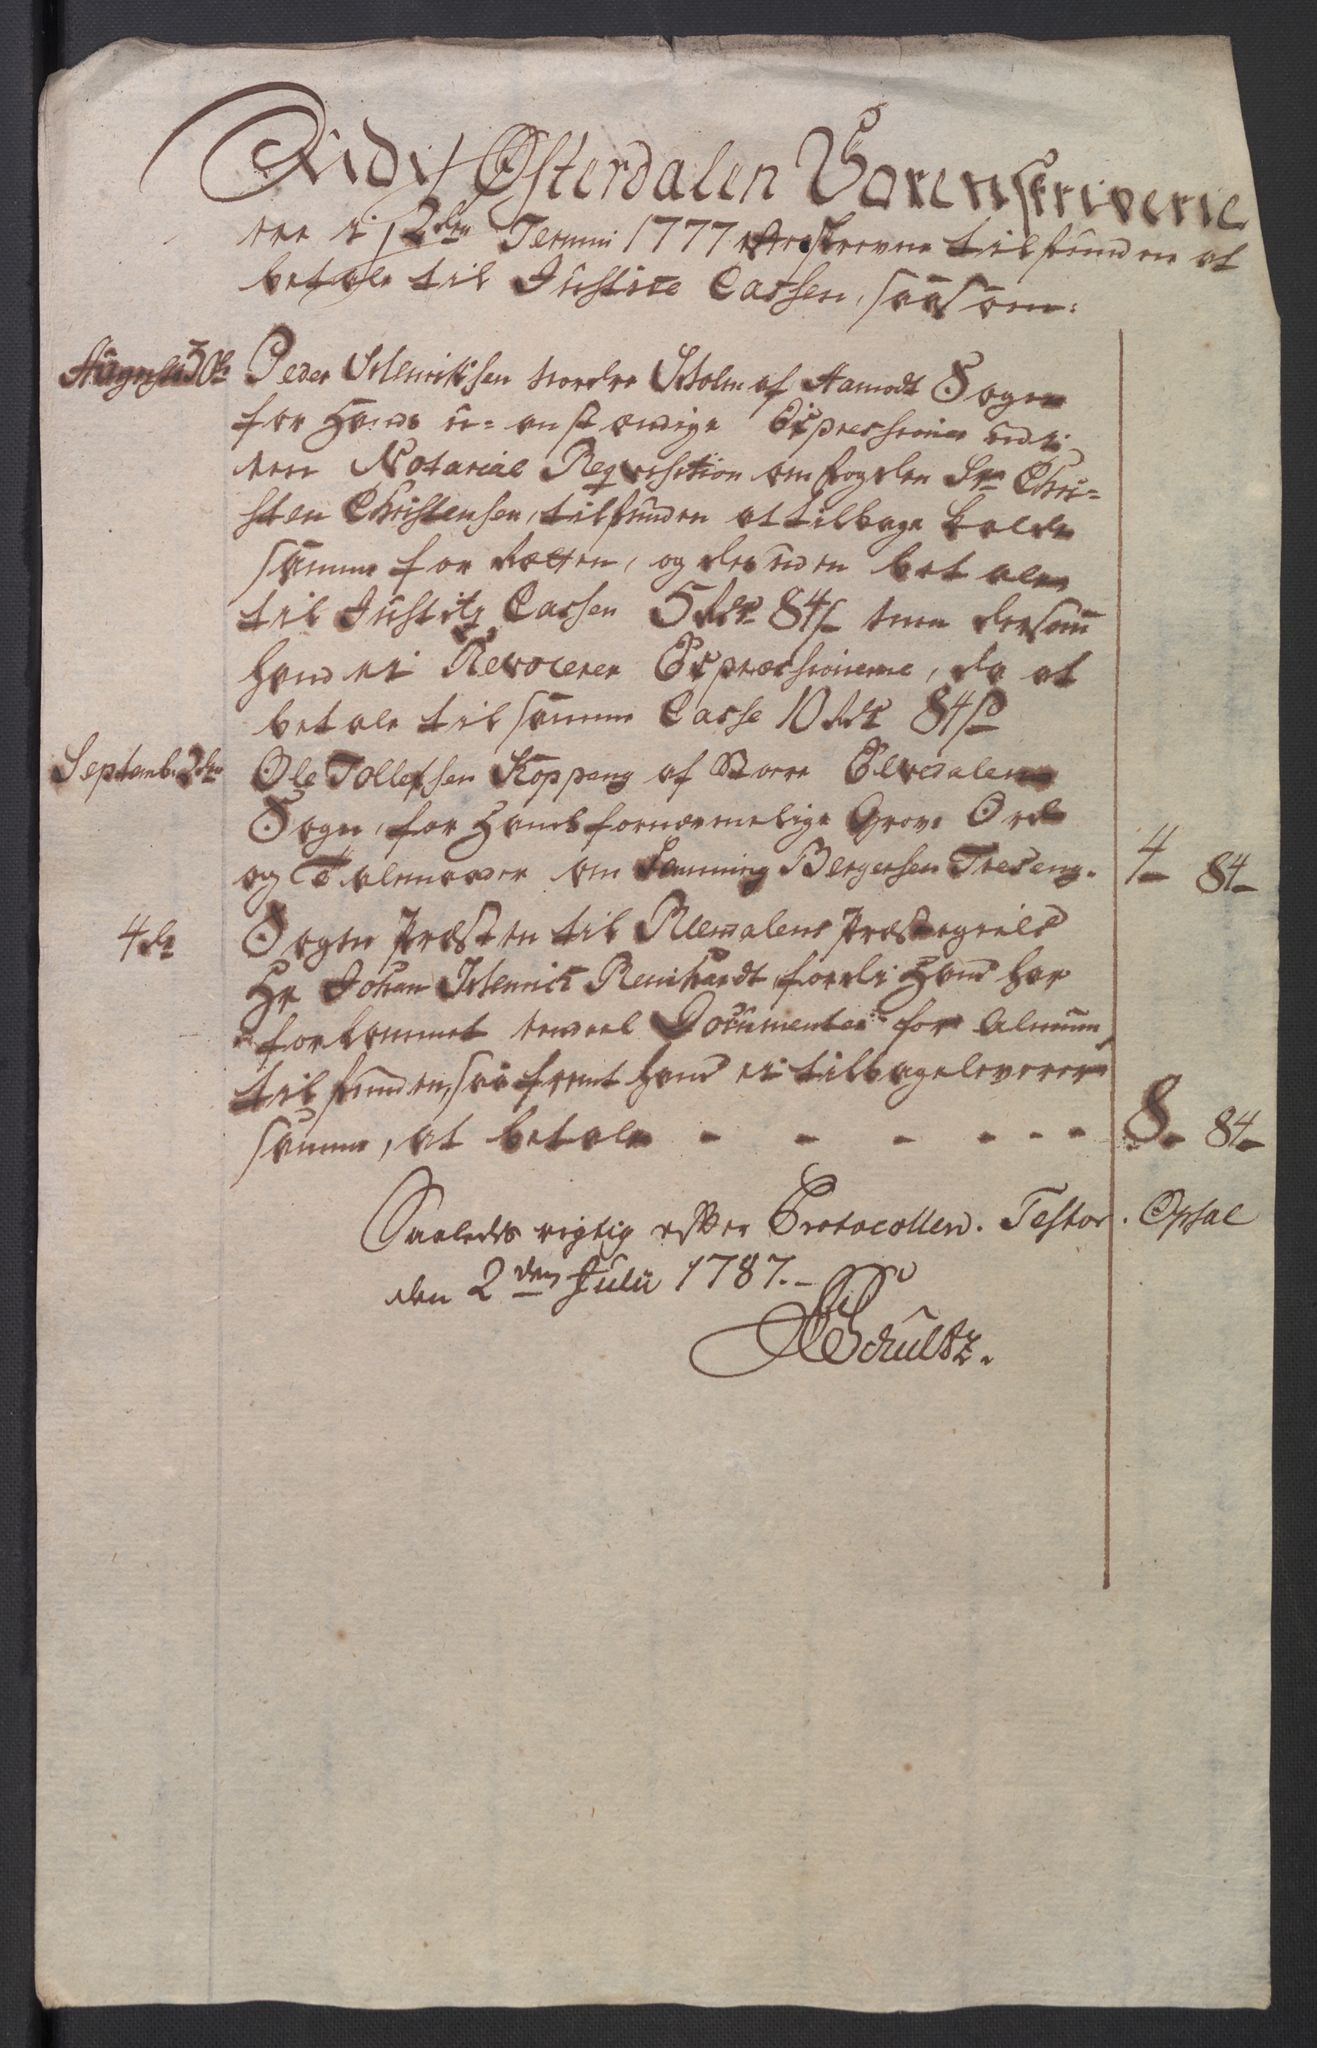 Udi Østerdalen Sorenskriverie
ere i 2den Termin 1777 efterskrevne tilfunden at
betale til Justice Cassen, saasom:
August 30te Peder Henrichsen nordre Holm af Aamodt Sogn
for hands u-anstændige Expressioner udi
een Notarial Reqvisition om fogden Sr Chri-
sten Christensen, tilfunden at tilbage kalde
samme for Retten, og desuden betale
til Justitz Cassen 5 rdr 84 s men dersom
hand ei Revocerer Expressionerne, da at
betale til samme Casse 10 rdr 84 s
Septemb. 2den Ole Tollefsen Koppang af Store Elvedalens
Sogn, for hands fornærmelige Grove Ord
og Talemaader om Hemming Bergersen Treseng. 4 - 84 -
4de Sogne Præsten til Reendalens Præstegield
Hr Johan Henrich Reinhardt, fordi hand har
forkommet endeel Documenter for Almuen,
tilfunden, saafremt hand ei tilbageleverer
samme, at betale - - - - - - 8 - 84 -
Saaledes rigtig efter Protocollen. Testor. Opsal
den 2den Julii 1787. -
Schultz.